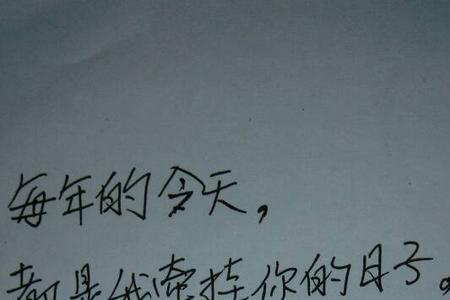 每年的今天，
都是我牵挂你的日子。